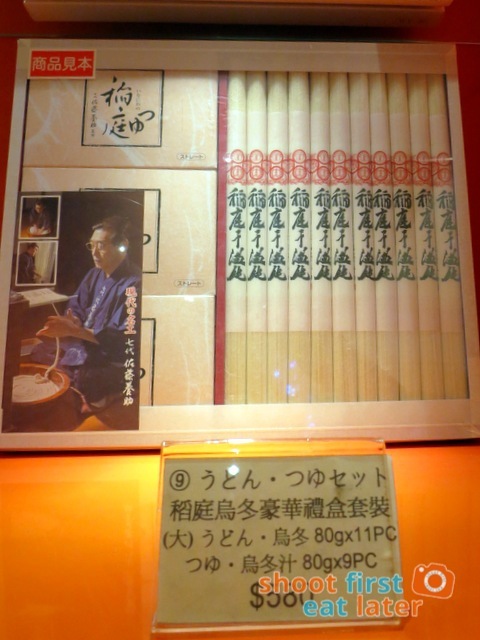 商品見本
稲庭
つゆ
ストレート
ストレート
現代の名工
七代 佐藤養助
稲庭干饂飩
稲庭干饂飩
稲庭干饂飩
稲庭干饂飩
稲庭干饂飩
稲庭干饂飩
稲庭干饂飩
稲庭干饂飩
稲庭干饂飩
稲庭干饂飩
⑨ うどん・つゆセット
稻庭烏冬豪華禮盒套裝
(大) うどん・烏冬 80gx11PC
つゆ・烏冬汁 80gx9PC
$580
shoot first
eat later